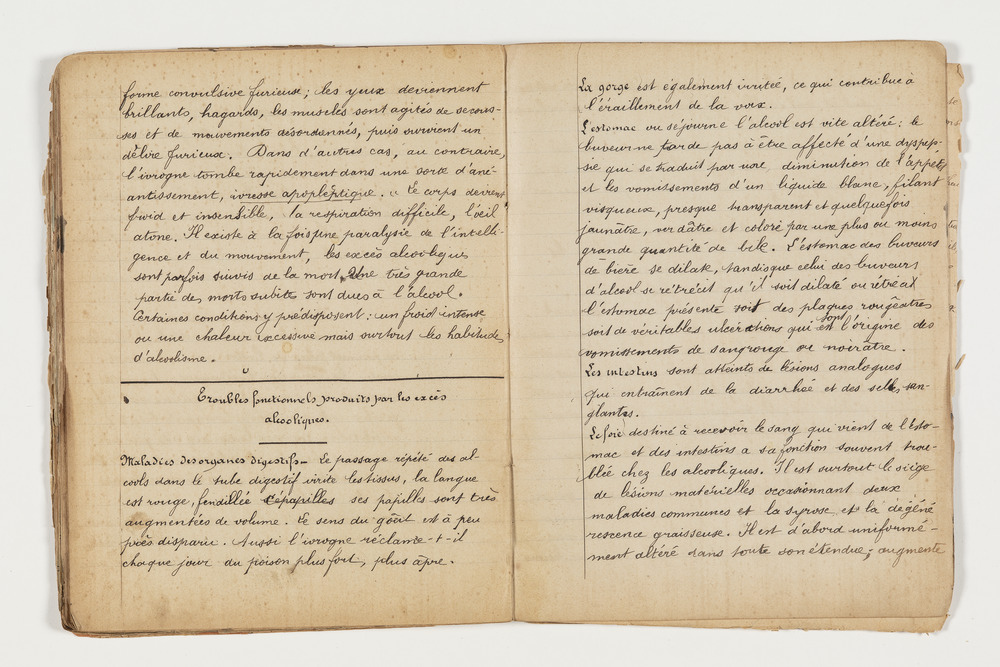 forme convulsive furieuse; les yeux deviennent
brillants, hagards, les muscles sont agités de secous-
ses et de mouvements désordonnés, puis survient un
délire furieux. Dans d'autres cas, au contraire,
l'ivrogne tombe rapidement dans une sorte d'ané-
antissement, ivresse apoplëptique. " Le corps devient
froid et insensible, la respiration difficile, l'œil
atone. Il existe à la fois une paralysie de l'intelli-
gence et du mouvement, les excès alcooliques
sont parfois suivis de la mort. Une très grande
partie des morts subites sont dues à l'alcool.
Certaines conditions y prédisposent: un froid intense
ou une chaleur excessive mais surtout les habitudes
d'alcoolisme.
Troubles fonctionnels produits par les excès
alcooliques.
Maladies des organes digestifs - Le passage répété des al-
cools dans le tube digestif irrite les tissus, la langue
est rouge, fendillée ses papilles sont très
augmentées de volume. Le sens du goût est à peu
près disparu. Aussi l'ivrogne réclame-t-il
chaque jour du poison plus fort, plus âpre.
La gorge est également irritée, ce qui contribue à
l'éraillement de la voix.
L'estomac où séjourne l'alcool est vite altéré: le
buveur ne tarde pas à être affecté d'une dyspep-
sie qui se traduit par une diminution de l'appétit
et les vomissements d'un liquide blanc, filant
visqueux, presque transparent et quelquefois
jaunâtre, verdâtre et coloré par une plus ou moins
grande quantité de bile. L'estomac des buveurs
de bière se dilate, tandis que celui des buveurs
d'alcool se rétrécit qu'il soit dilaté ou rétréci
l'estomac présente soit des plaques rougeâtres
soit de véritables ulcérations qui sont l'origine des
vomissements de sang rouge ou noirâtre.
Les intestins sont atteints de lésions analogues
qui entraînent de la diarrhée et des selles san-
glantes.
Le foie destiné à recevoir le sang qui vient de l'esto-
mac et des intestins a sa fonction souvent trou-
blée chez les alcooliques. Il est surtout le siège
de lésions matérielles occasionnant deux
maladies communes et la syrose, et la dégéné
rescence graisseuse. Il est d'abord uniformé-
ment altéré dans toute son étendue; augmente